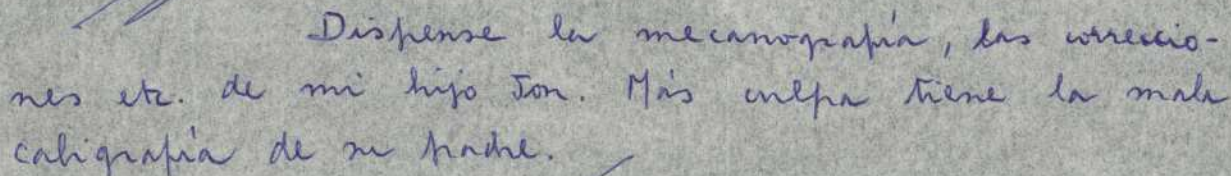 Dispense la mecanografía, las correccio-
nes etc. de mi hijo Jon. Más culpa tiene la mala
caligrafía de su padre.